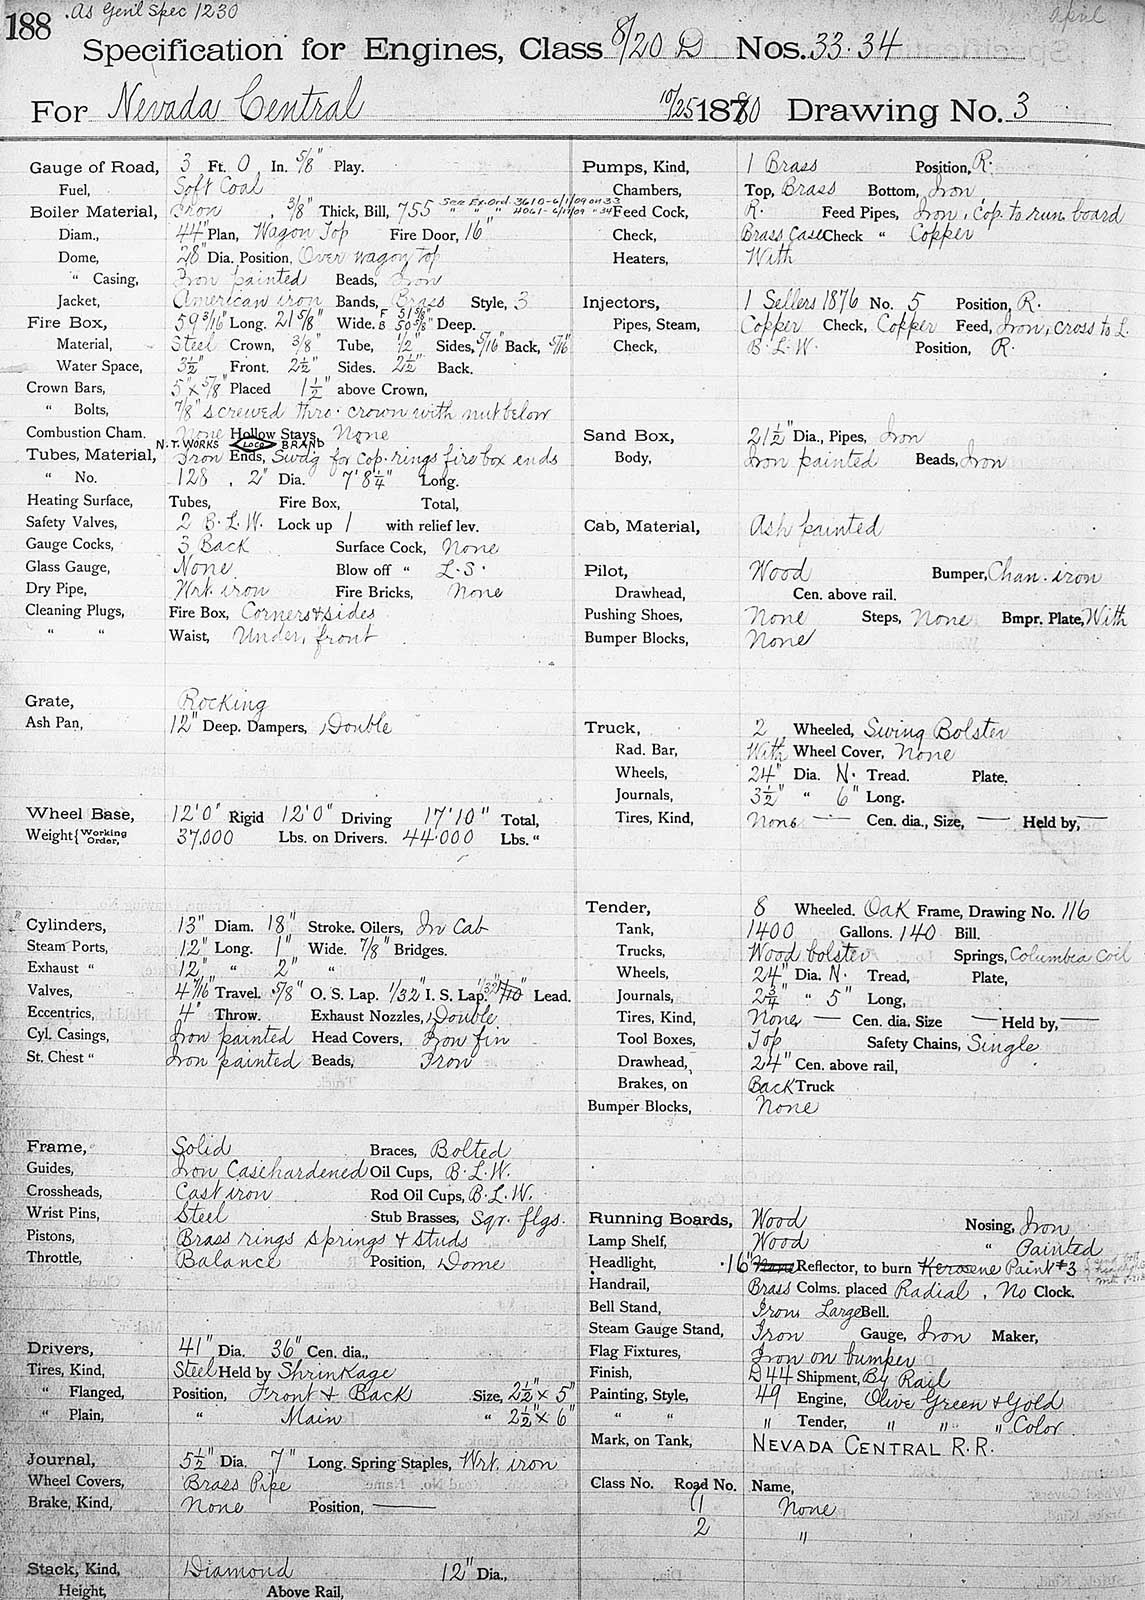 188 As Gen'l Spec 1230 April
Specification for Engines, Class 8/20 D Nos. 33.34
For Nevada Central 10/25 1880 Drawing No. 3
Gauge of Road, 3 Ft. 0 In. 5/8" Play.
Fuel, Soft Coal
Boiler Material, Iron, 3/8" Thick, Bill, 755 See Ex. Ord. 3610-6/1/09 on 33
" " " 4061-6/17/09 " 34
Diam., 44" Plan, Wagon Top Fire Door, 16"
Dome, 28" Dia. Position, Over wagon top
" Casing, Iron painted Beads, Iron
Jacket, American iron Bands, Brass Style, 3
Fire Box, 59 3/16" Long. 21 5/8" Wide. F 51 5/8" B 50 5/8" Deep.
Material, Steel Crown, 3/8" Tube, 1/2" Sides, 5/16" Back, 5/16"
Water Space, 3½" Front. 2½" Sides. 2½" Back.
Crown Bars, 5" x 5/8" Placed 1½" above Crown,
" Bolts, 7/8" screwed thro. crown with nut below
Combustion Cham. None Hollow Stays, None
N.T. WORKS LOCO BRAND
Tubes, Material, Iron Ends, Swdg for cop. rings fire box ends
" No. 128, 2" Dia. 7' 8¼" Long.
Heating Surface, Tubes, Fire Box, Total,
Safety Valves, 2 B.L.W. Lock up 1 with relief lev.
Gauge Cocks, 3 Back Surface Cock, None
Glass Gauge, None Blow off " L.S.
Dry Pipe, Wrt. iron Fire Bricks, None
Cleaning Plugs, Fire Box, Corners & sides
" " Waist, Under, front
Grate, Rocking
Ash Pan, 12" Deep. Dampers, Double
Wheel Base, 12' 0" Rigid 12' 0" Driving 17' 10" Total,
Weight { Working Order, 37.000 Lbs. on Drivers. 44.000 Lbs. "
Cylinders, 13" Diam. 18" Stroke. Oilers, In Cab
Steam Ports, 12" Long. 1" Wide. 7/8" Bridges.
Exhaust " 12" " 2" "
Valves, 4 7/16" Travel. 5/8" O. S. Lap. 1/32" I. S. Lap. 1/32" 1/10" Lead.
Eccentrics, 4" Throw. Exhaust Nozzles, Double
Cyl. Casings, Iron painted Head Covers, Iron fin
St. Chest " Iron painted Beads, Iron
Frame, Solid Braces, Bolted
Guides, Iron Casehardened Oil Cups, B.L.W.
Crossheads, Cast iron Rod Oil Cups, B.L.W.
Wrist Pins, Steel Stub Brasses, Sqr. flgs.
Pistons, Brass rings springs & studs
Throttle, Balance Position, Dome
Drivers, 41" Dia. 36" Cen. dia.,
Tires, Kind, Steel Held by Shrinkage
" Flanged, Position, Front & Back Size, 2½" x 5"
" Plain, " Main " 2½" x 6"
Journal, 5½" Dia. 7" Long. Spring Staples, Wrt. iron
Wheel Covers, Brass Pipe
Brake, Kind, None Position, —
Stack, Kind, Diamond 12" Dia.,
Height, Above Rail,
Pumps, Kind, 1 Brass Position, R.
Chambers, Top, Brass Bottom, Iron
Feed Cock, R. Feed Pipes, Iron, cop. to run. board
Check, Brass Case Check " Copper
Heaters, With
Injectors, 1 Sellers 1876 No. 5 Position, R.
Pipes, Steam, Copper Check, Copper Feed, Iron, cross to L.
Check, B.L.W. Position, R.
Sand Box, 21½" Dia., Pipes, Iron
Body, Iron painted Beads, Iron
Cab, Material, Ash painted
Pilot, Wood Bumper, Chan. iron
Drawhead, Cen. above rail.
Pushing Shoes, None Steps, None Bmpr. Plate, With
Bumper Blocks, None
Truck, 2 Wheeled, Swing Bolster
Rad. Bar, With Wheel Cover, None
Wheels, 24" Dia. N. Tread. Plate.
Journals, 3½" " 6" Long.
Tires, Kind, None — Cen. dia., Size, — Held by, —
Tender, 8 Wheeled. Oak Frame, Drawing No. 116
Tank, 1400 Gallons. 140 Bill.
Trucks, Wood bolster Springs, Columbia Coil
Wheels, 24" Dia. N. Tread, Plate,
Journals, 2¾" " 5" Long,
Tires, Kind, None — Cen. dia. Size — Held by, —
Tool Boxes, Top Safety Chains, Single
Drawhead, 24" Cen. above rail,
Brakes, on Back Truck
Bumper Blocks, None
Running Boards, Wood Nosing, Iron
Lamp Shelf, Wood " Painted
Headlight, 16" None Reflector, to burn Kerosene Paint #3
Handrail, Brass Colms. placed Radial, No Clock.
Bell Stand, Iron Large Bell.
Steam Gauge Stand, Iron Gauge, Iron Maker,
Flag Fixtures, Iron on bumper
Finish, D44 Shipment, By Rail
Painting, Style, 49 Engine, Olive Green & Gold
" " " Tender, " " " Color
Mark, on Tank, NEVADA CENTRAL R.R.
Class No. Road No. Name,
1 None
2 "